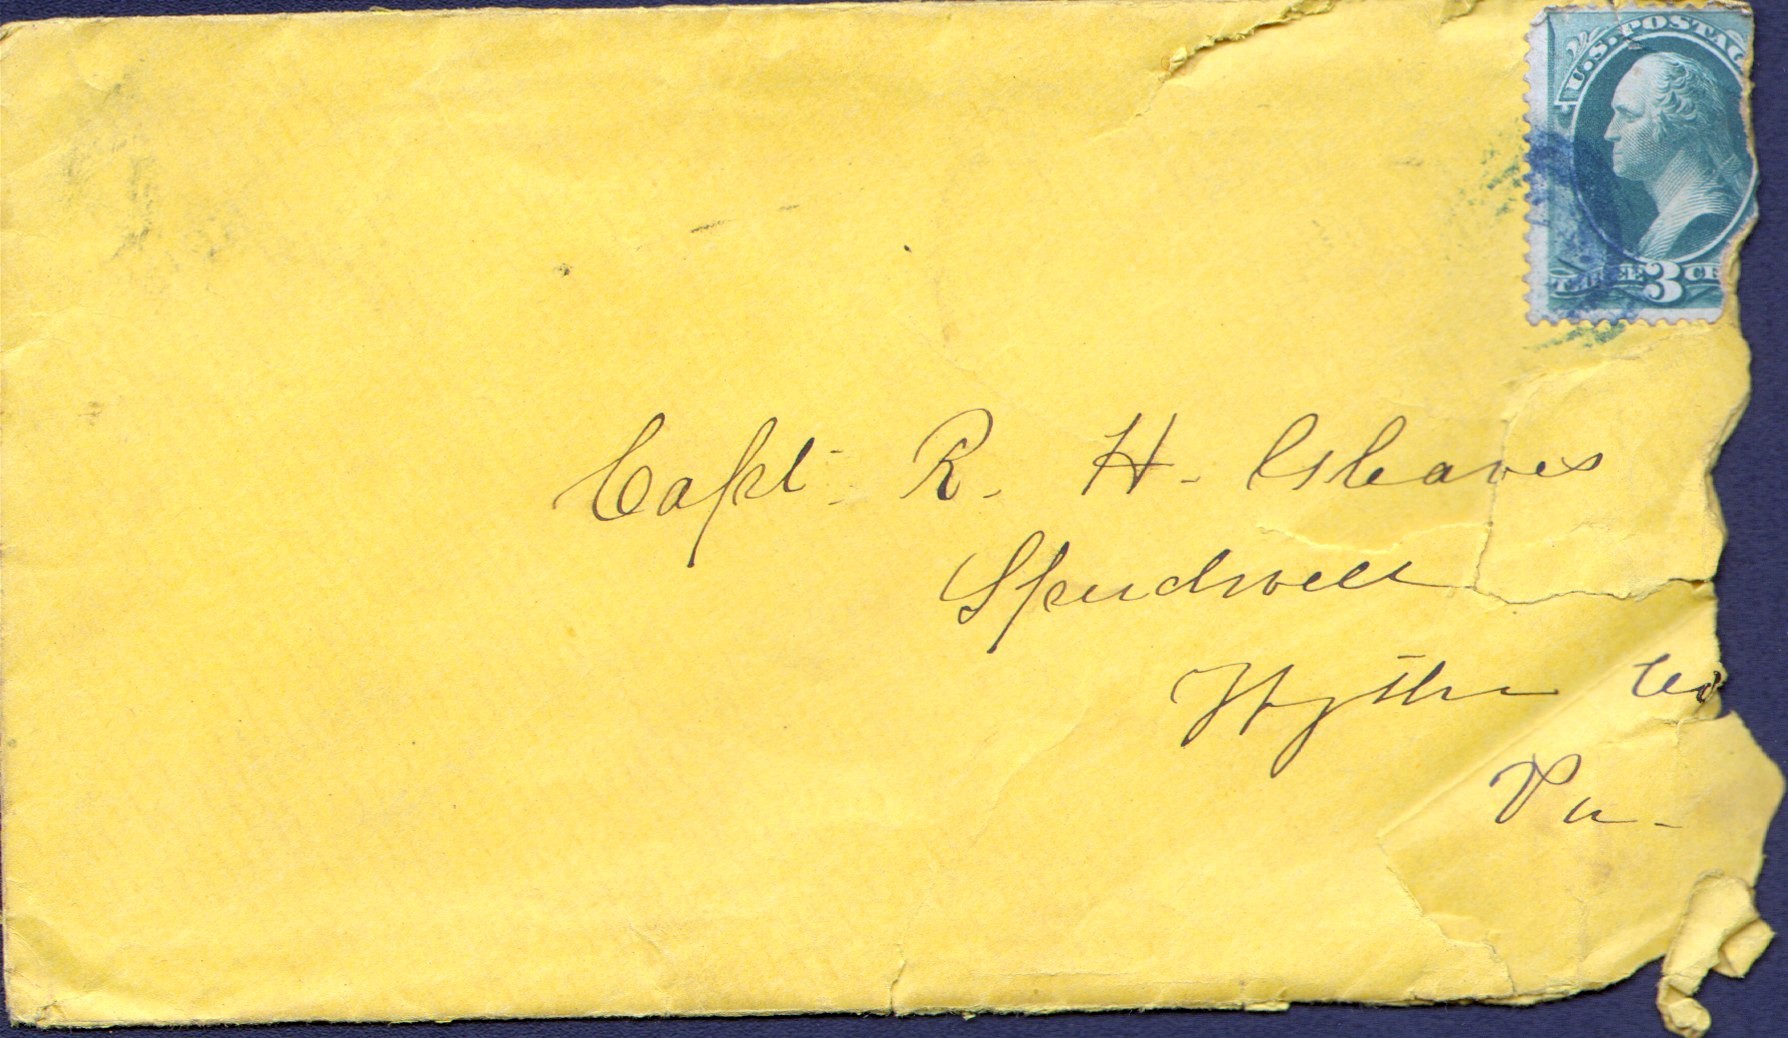 U.S. POSTAG
THREE 3 CE
Capt. R. H. Gleaves
Speedwell
Wythe Co
Va.